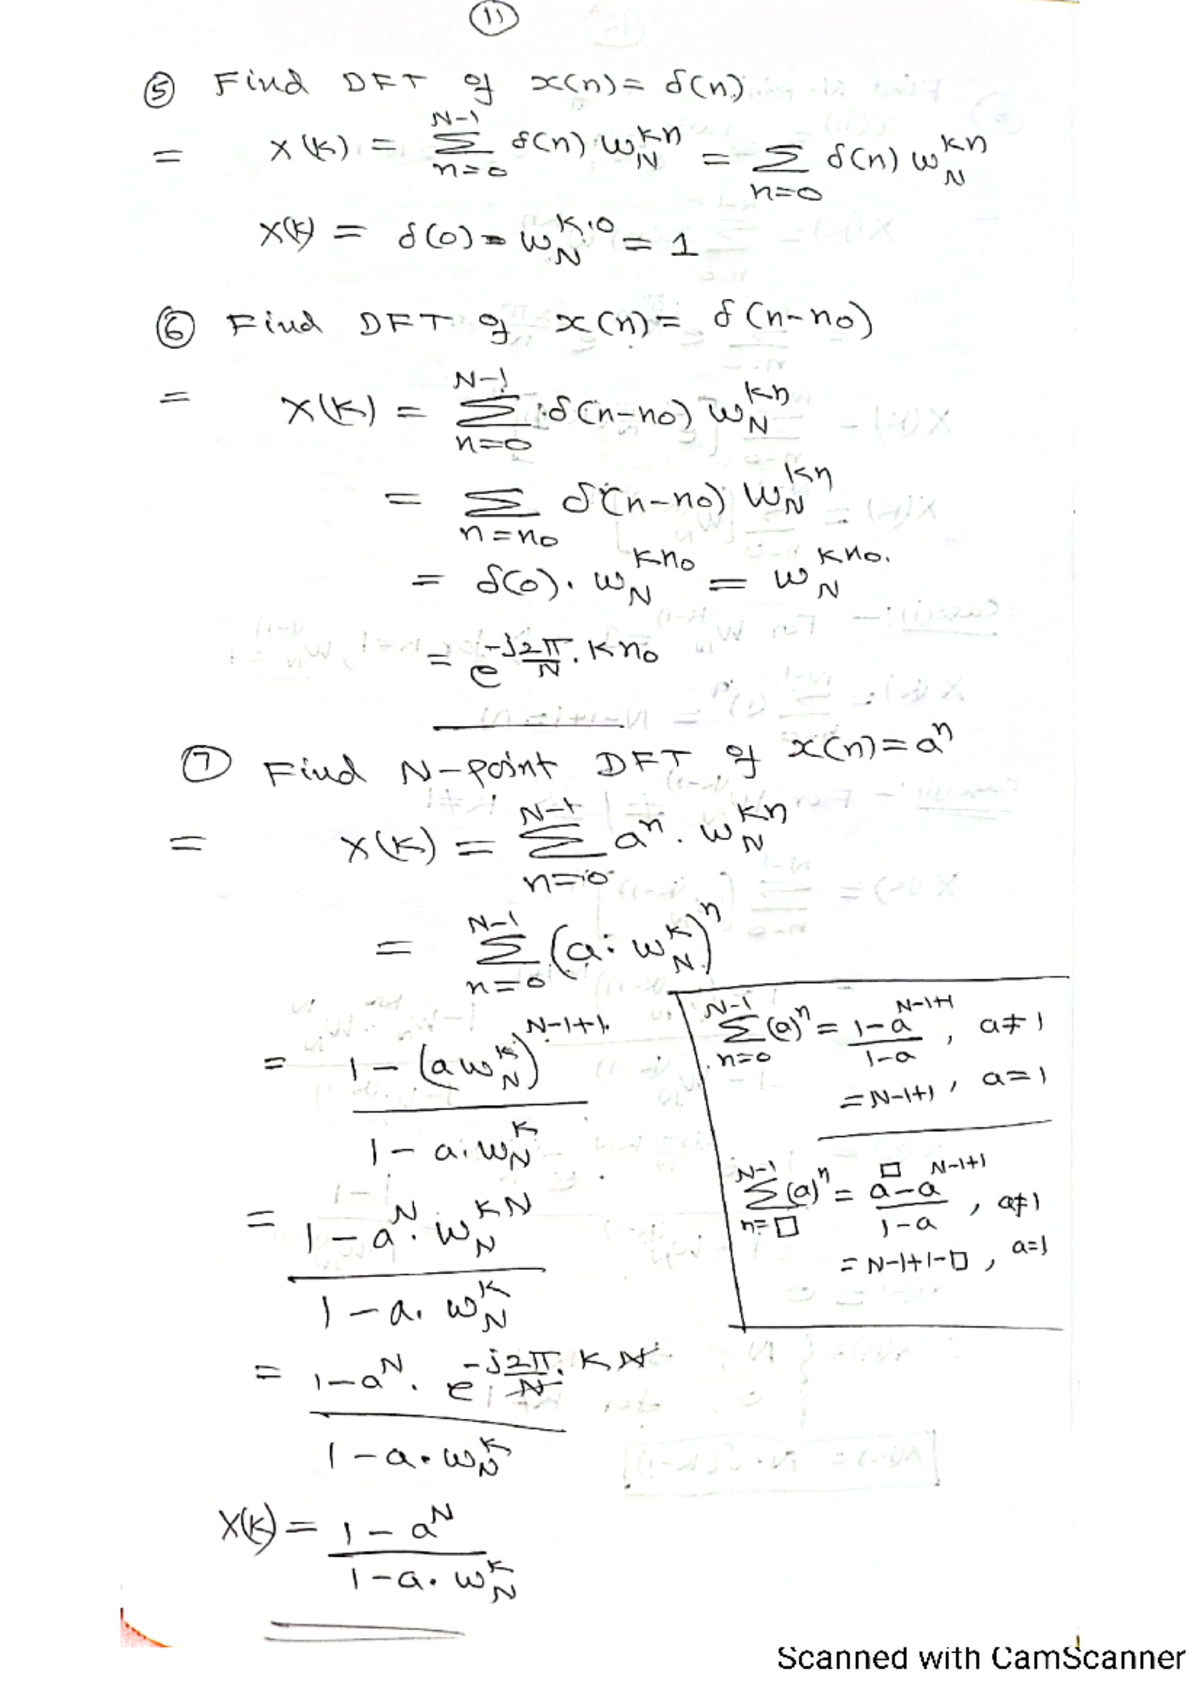 11
5 Find DFT of x(n) = δ(n)
= X(K) = N-1 Σ n=0 δ(n) W_N^{Kn} = Σ n=0 δ(n) W_N^{Kn}
X(K) = δ(0) - W_N^{K.0} = 1
6 Find DFT of x(n) = δ(n-n0)
= X(K) = N-1 Σ n=0 δ(n-n0) W_N^{Kn}
= Σ n=n0 δ(n-n0) W_N^{Kn}
= δ(0). W_N^{Kn0} = W_N^{Kn0}.
= e^{-j2π/N . Kn0}
7 Find N-point DFT of x(n) = a^n
= X(K) = N-1 Σ n=0 a^n . W_N^{Kn}
= N-1 Σ n=0 (a. W_N^K)^n
= 1 - (a W_N^K)^{N-1+1} / 1 - a. W_N^K
= 1 - a^N. W_N^{KN} / 1 - a. W_N^K
= 1 - a^N . e^{-j2π/N . KN} / 1 - a. W_N^K
X(K) = 1 - a^N / 1 - a. W_N^K
N-1 Σ n=0 (a)^n = 1 - a^{N-1+1} / 1-a , a≠1
= N-1+1 , a=1
N-1 Σ n=□ (a)^n = a^□ - a^{N-1+1} / 1-a , a≠1
= N-1+1-□ , a=1
Scanned with CamScanner